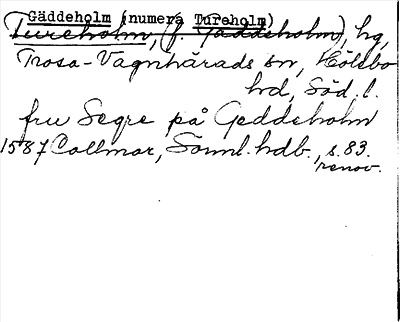 Gäddeholm (numera Tureholm)
Tureholm, (f. Gäddeholm), hg,
Trosa-Vagnhärads sn, Hölebo
hd, Söd. l.
fru Segre på Geddeholm
1587 Collmar, Sörml. hdb., s. 83.
renov.